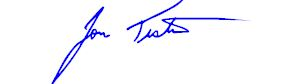 Jon Tester